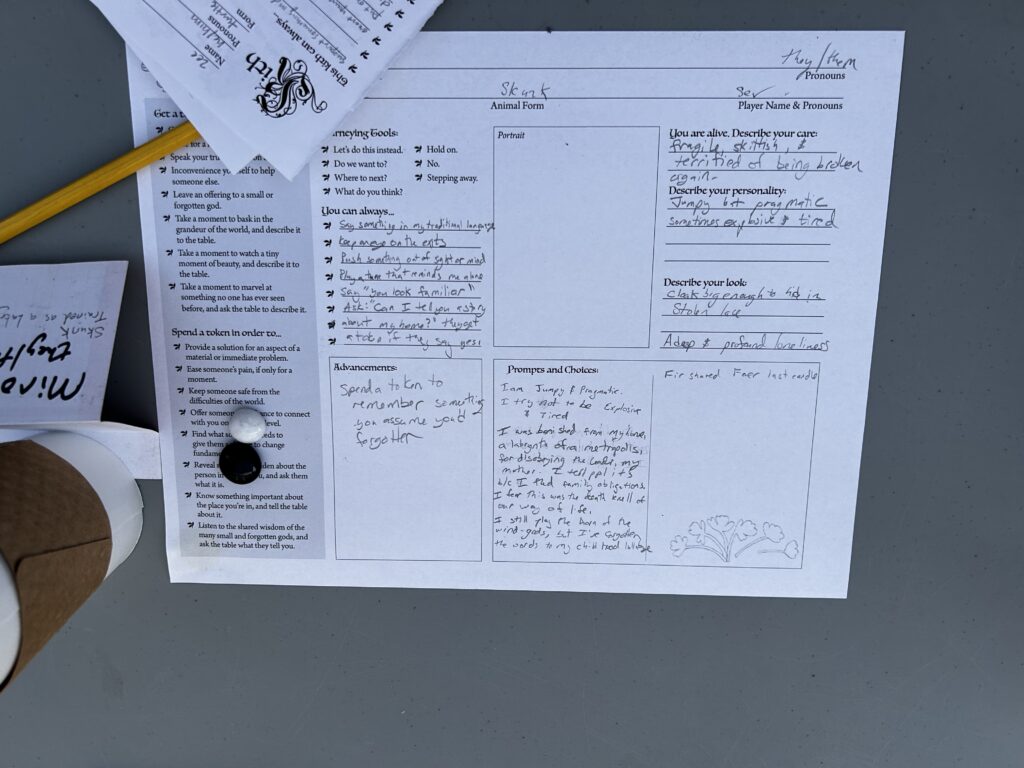 they/them
Pronouns
Skunk
Animal Form
Player Name & Pronouns
Name
Pronouns
Form
This kith can always:
Kith
Get a t
for a
Speak your tru
Inconvenience yourself to help
someone else.
Leave an offering to a small or
forgotten god.
Take a moment to bask in the
grandeur of the world, and describe it
to the table.
Take a moment to watch a tiny
moment of beauty, and describe it to
the table.
Take a moment to marvel at
something no one has ever seen
before, and ask the table to describe it.
Spend a token in order to...
Provide a solution for an aspect of a
material or immediate problem.
Ease someone's pain, if only for a
moment.
Keep someone safe from the
difficulties of the world.
Offer someone a chance to connect
with you on level.
Find what needs to
give them to change
fundame
Reveal den about the
person in you, and ask them
what it is.
Know something important about
the place you're in, and tell the table
about it.
Listen to the shared wisdom of the
many small and forgotten gods, and
ask the table what they tell you.
rneying Tools:
Let's do this instead.
Do we want to?
Where to next?
What do you think?
Hold on.
No.
Stepping away.
You can always...
Say something in my traditional language
Keep an eye on the exits
Push something out of sight or mind
Play a tune that reminds me of home
Say "you look familiar"
Ask: "Can I tell you a story
about my home?" They get
a token if they say yes!
Advancements:
Spend a token to
remember something
you assume you'd
forgotten
Portrait
You are alive. Describe your care:
fragile, skittish, &
terrified of being broken
again.
Describe your personality:
Jumpy but pragmatic
sometimes explosive & tired
Describe your look:
Cloak big enough to hide in
Stolen lace
A deep & profound loneliness
Prompts and Choices:
I am Jumpy & Pragmatic.
I try not to be Explosive
& Tired
I was banished from my home,
a labyrinth of a metropolis,
for disobeying the leader, my
mother. I tell ppl it's
b/c I had family obligations.
I fear this was the death knell of
our way of life.
I still play the horn of the
wind-gods, but I've forgotten
the words to my childhood lullabye
Fir shared Faer last candle
Skunk
they/t